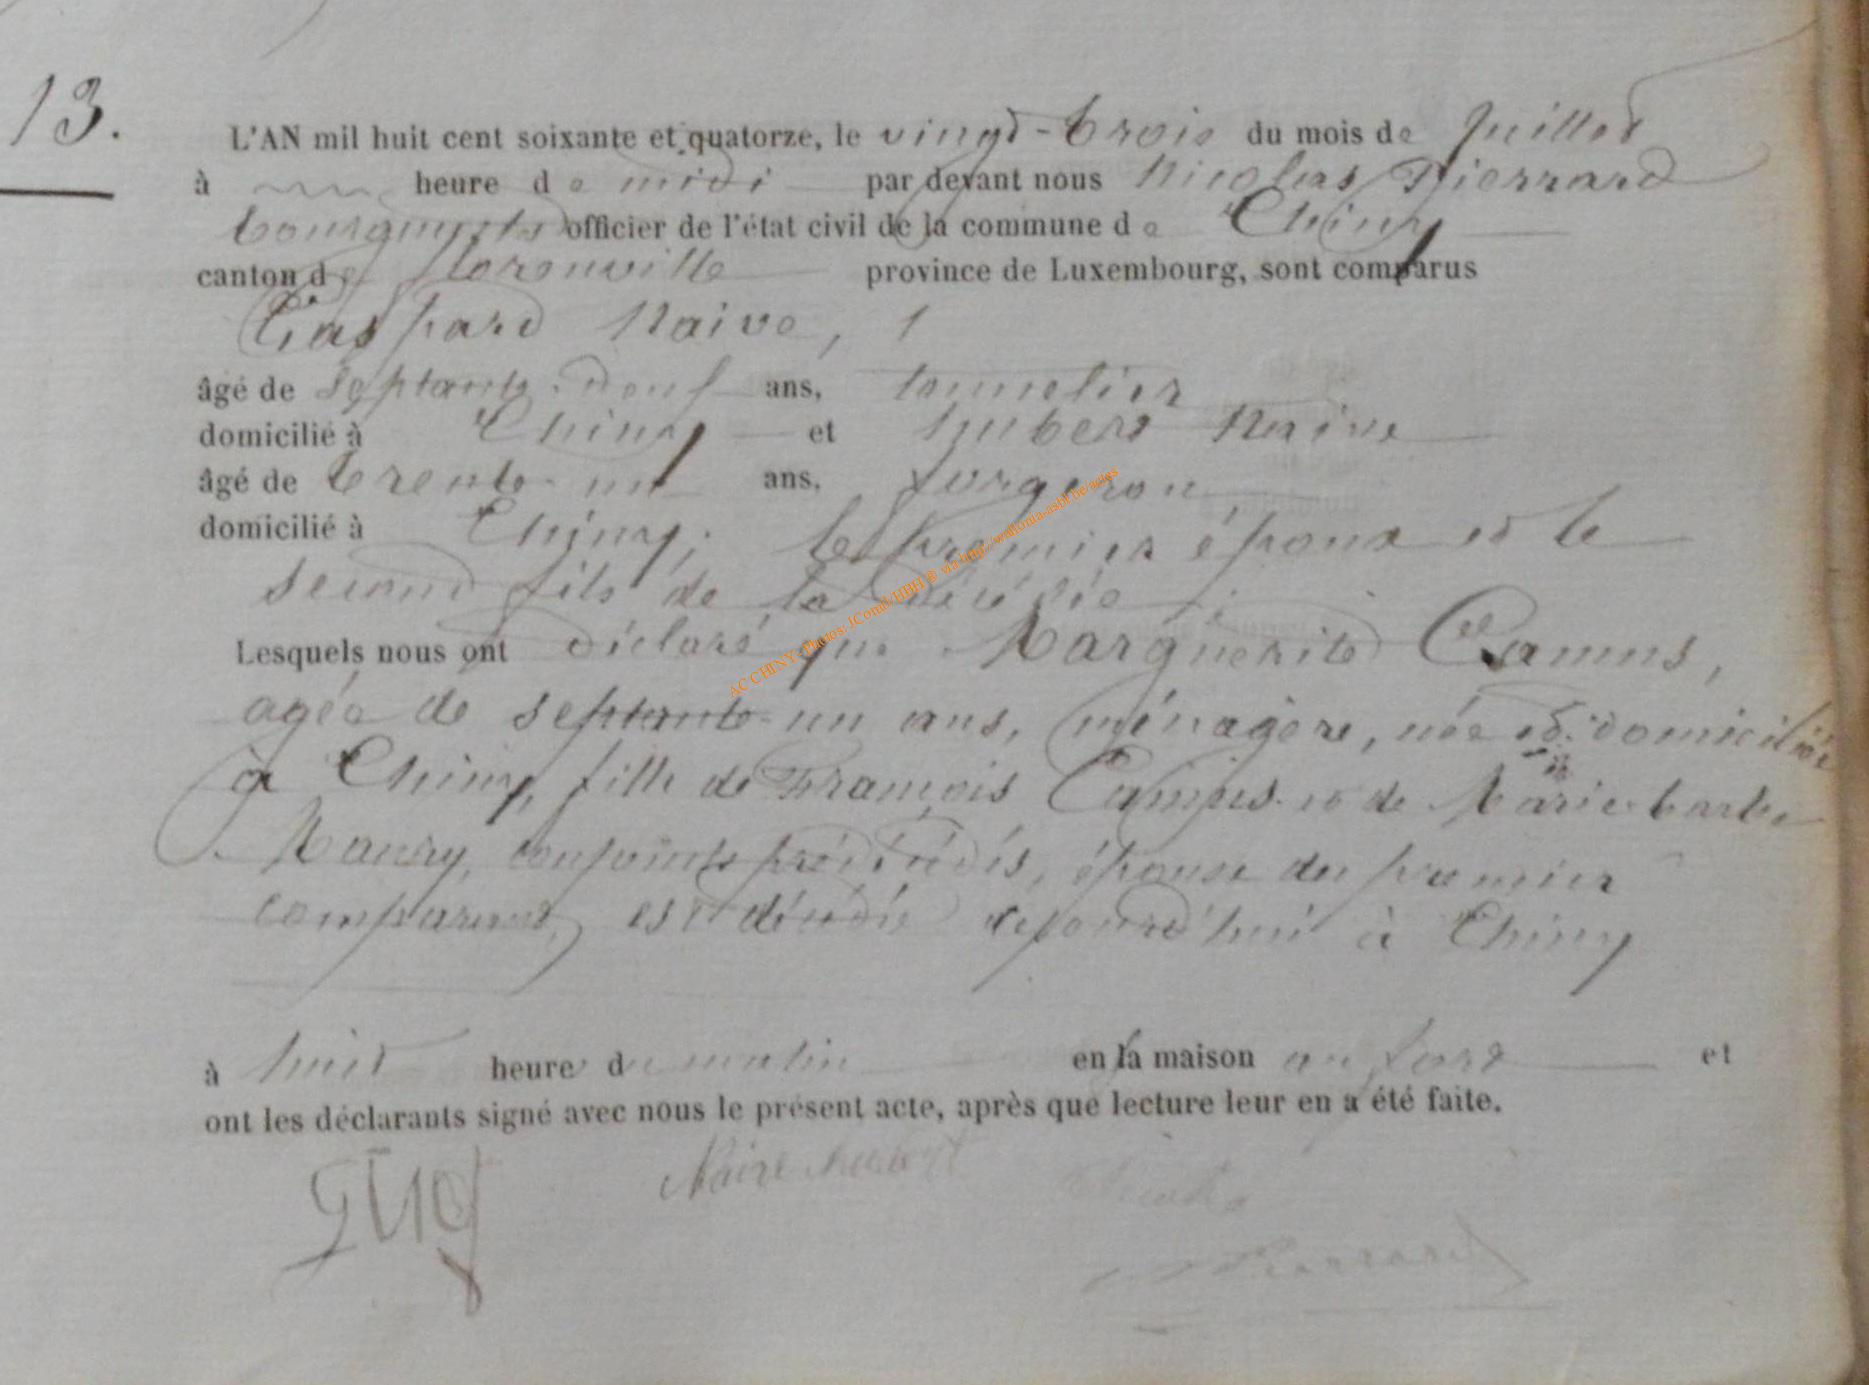 13.
L'AN mil huit cent soixante et quatorze, le vingt-trois du mois de Juillet
à heure de midi par devant nous Nicolas Pierrard
bourgmestre officier de l'état civil de la commune de Chiny
canton de florenville province de Luxembourg, sont comparus
Gaspard Naive,
âgé de septante-neuf ans, tonnelier
domicilié à Chiny et hubert Naive
âgé de trente-un ans, forgeron
domicilié à Chiny; le premier époux et le
second fils de la décédée;
Lesquels nous ont déclaré que Marguerite Camus,
agée de septante-un ans, ménagère, née et domiciliée
à Chiny, fille de François Camus et de Marie barbe
Maury, conjoints prédécédés, épouse du premier
comparant, est décédée aujourd'hui à Chiny
à huit heures du matin en la maison et
ont les déclarants signé avec nous le présent acte, après que lecture leur en a été faite.
Naive hubert
Pierrard
AC CHINY-Photos: JComB-HBH ® via http://wallonia-asbl.be/actes